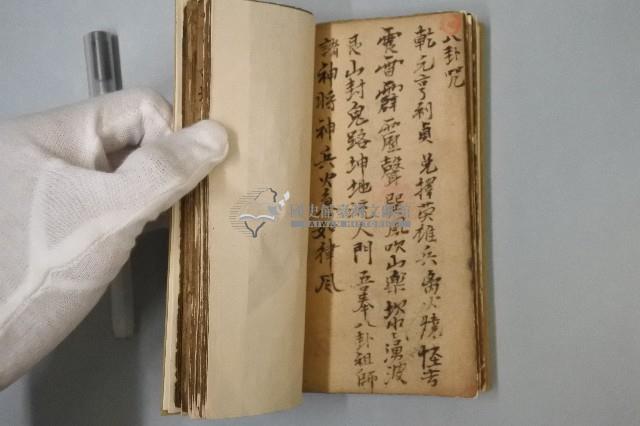 八卦咒
乾元亨利貞 兌擇英雄兵 离火燒怪
雷霹靂聲 巽風吹山 坎水湧波
艮山封鬼路 坤地人門 吾奉八卦祖師
諸神將神兵火如律
國史館臺灣文獻館
TAIWAN HISTORICA